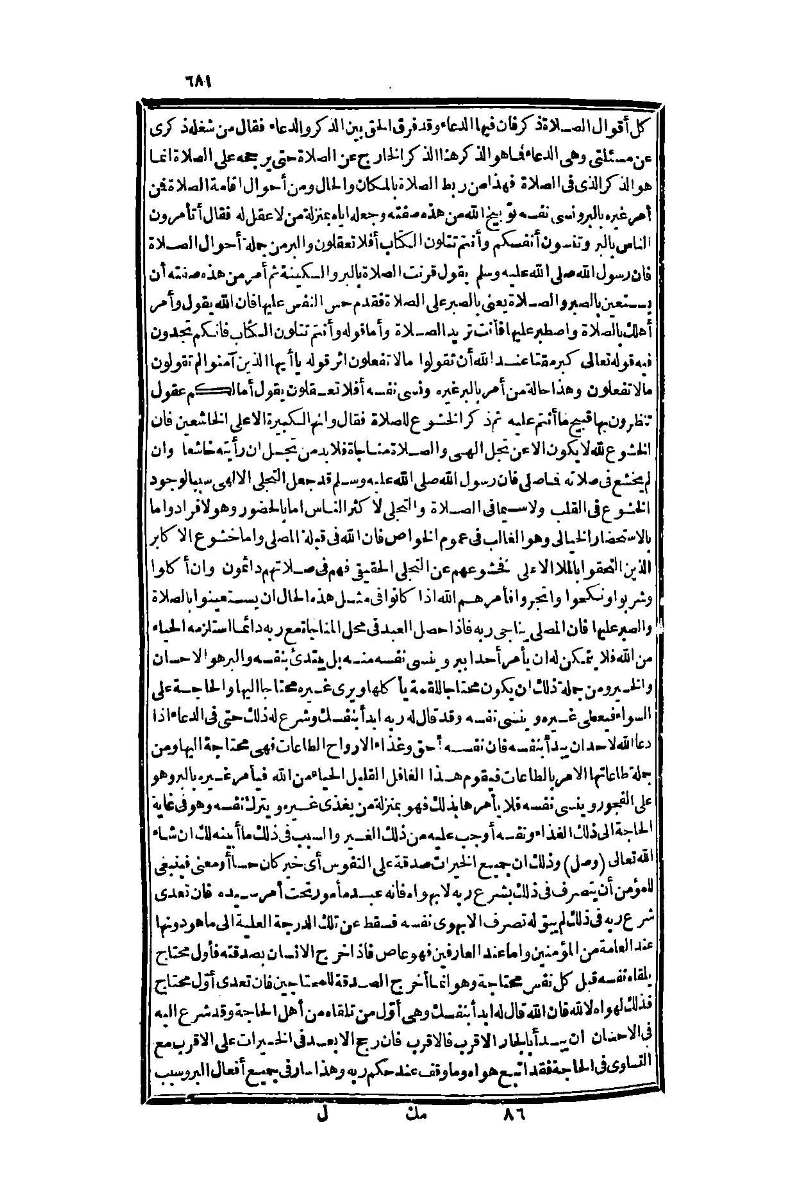 ٦٨١
كل أقوال الصلاة ذكر فان فيها الدعاء وقد فرق الحق بين الذكر والدعاء فقال من شغله ذكرى
عن مسئلتى وهى الدعاء فما هو الذكر هنا الذكر الخارج عن الصلاة حتى يرجحه على الصلاة انما
هو الذكر الذى فى الصلاة فهذا من ربط الصلاة بالمكان والحال ومن أحوال اقامة الصلاة فمن
أمر غيره بالبر ونسى نفسه توبيخ الله من هذه صفته وجعله اياه بمنزلة من لا عقل له فقال أتأمرون
الناس بالبر وتنسون أنفسكم وأنتم تتلون الكتاب أفلا تعقلون والبر من جملة أحوال الصلاة
فان رسول الله صلى الله عليه وسلم يقول قرنت الصلاة بالبر والسكينة ثم أمر من هذه صفته أن
يستعين بالصبر والصلاة يعنى بالصبر على الصلاة فقدم حبس النفس عليها فان الله يقول وأمر
أهلك بالصلاة واصطبر عليها فأنت تريد الصلاة وأما قوله وأنتم تتلون الكتاب فانكم تجدون
فيه قوله تعالى كبر مقتا عند الله أن تقولوا ما لا تفعلون اثر قوله يا أيها الذين آمنوا لم تقولون
ما لا تفعلون وهذا حالة من أمر بالبر غيره ونسى نفسه أفلا تعقلون يقول أما لكم عقول
تنظرون بها قبيح ما أنتم عليه ثم ذكر الخشوع للصلاة فقال وانها لكبيرة الا على الخاشعين فان
الخشوع لله لا يكون الا عن تجل الهى والصلاة مناجاة فلا بد من تجل ان رأيته خاشعا وان
لم يخشع فى صلاته فما صلى فان رسول الله صلى الله عليه وسلم قد جعل التجلى الالهى سببا لوجود
الخشوع فى القلب ولا سيما فى الصلاة والتجلى لا كثر الناس اما بالحضور وهو لا فراد واما
بالاستحضار الخيالى وهو الغالب فى عموم الخواص فان الله فى قبلة المصلى واما خشوع الاكابر
الذين التحقوا بالملا الاعلى فخشوعهم عن التجلى الحقيقى فهم فى صلاتهم دائمون وان أكلوا
وشربوا ونكحوا واتجروا فأمرهم الله اذا كانوا فى مثل هذه الحال ان يستعينوا بالصلاة
والصبر عليها فان المصلى يناجى ربه فاذا حصل العبد فى محل المناجاة مع ربه دائما استلزمه الحياء
من الله فلا يتمكن له ان يأمر أحدا ببر وينسى نفسه منه بل يبتدئ بنفسه والبر هو الاحسان
والخير ومن جملة ذلك ان يكون محتاجا للقمة يأكلها ويرى غيره محتاجا اليها والحاجة على
السواء فيعطى غيره وينسى نفسه وقد قال له ربه ابدأ بنفسك وشرع له ذلك حتى فى الدعاء اذا
دعا الله لاحد ان يبدأ بنفسه فان نفسه أحق وغذاء الارواح الطاعات فهى محتاجة اليها ومن
جملة طاعاتها الامر بالطاعات فيقوم هذا الغافل القليل الحياء من الله فيأمر غيره بالبر وهو
على الفجور وينسى نفسه فلا يأمرها بذلك فهو بمنزلة من يغذى غيره ويترك نفسه وهو فى غاية
الحاجة الى ذلك الغذاء ونفسه أوجب عليه من ذلك الغير والسبب فى ذلك ما أبينه لك ان شاء
الله تعالى (وصل) وذلك ان جميع الخيرات صدقة على النفوس أى خير كان حسا أو معنى فينبغى
للمؤمن أن يتصرف فى ذلك بشرع ربه لا بهواه فانه عبد مأمور تحت أمر سيده فان تعدى
شرع ربه فى ذلك لم يبق له تصرف الا بهوى نفسه فسقط عن تلك الدرجة العلية الى ما هو دونها
عند العامة من المؤمنين واما عند العارفين فهو عاص فاذا خرج الانسان بصدقته فأول محتاج
يلقاه نفسه قبل كل نفس محتاجة وهو انما أخرج الصدقة للمحتاجين فان تعدى أول محتاج
فذلك لهواه لا لله فان الله قال له ابدأ بنفسك وهى أول من تلقاه من أهل الحاجة وقد شرع اليه
فى الاحسان ان يبدأ بالجار الاقرب فالاقرب فان رجح الابعد فى الخيرات على الاقرب مع
التساوى فى الحاجة فقد اتبع هواه وما وقف عند حكم ربه وهذا سار فى جميع أفعال البر وسبب
٨٦ مك ل